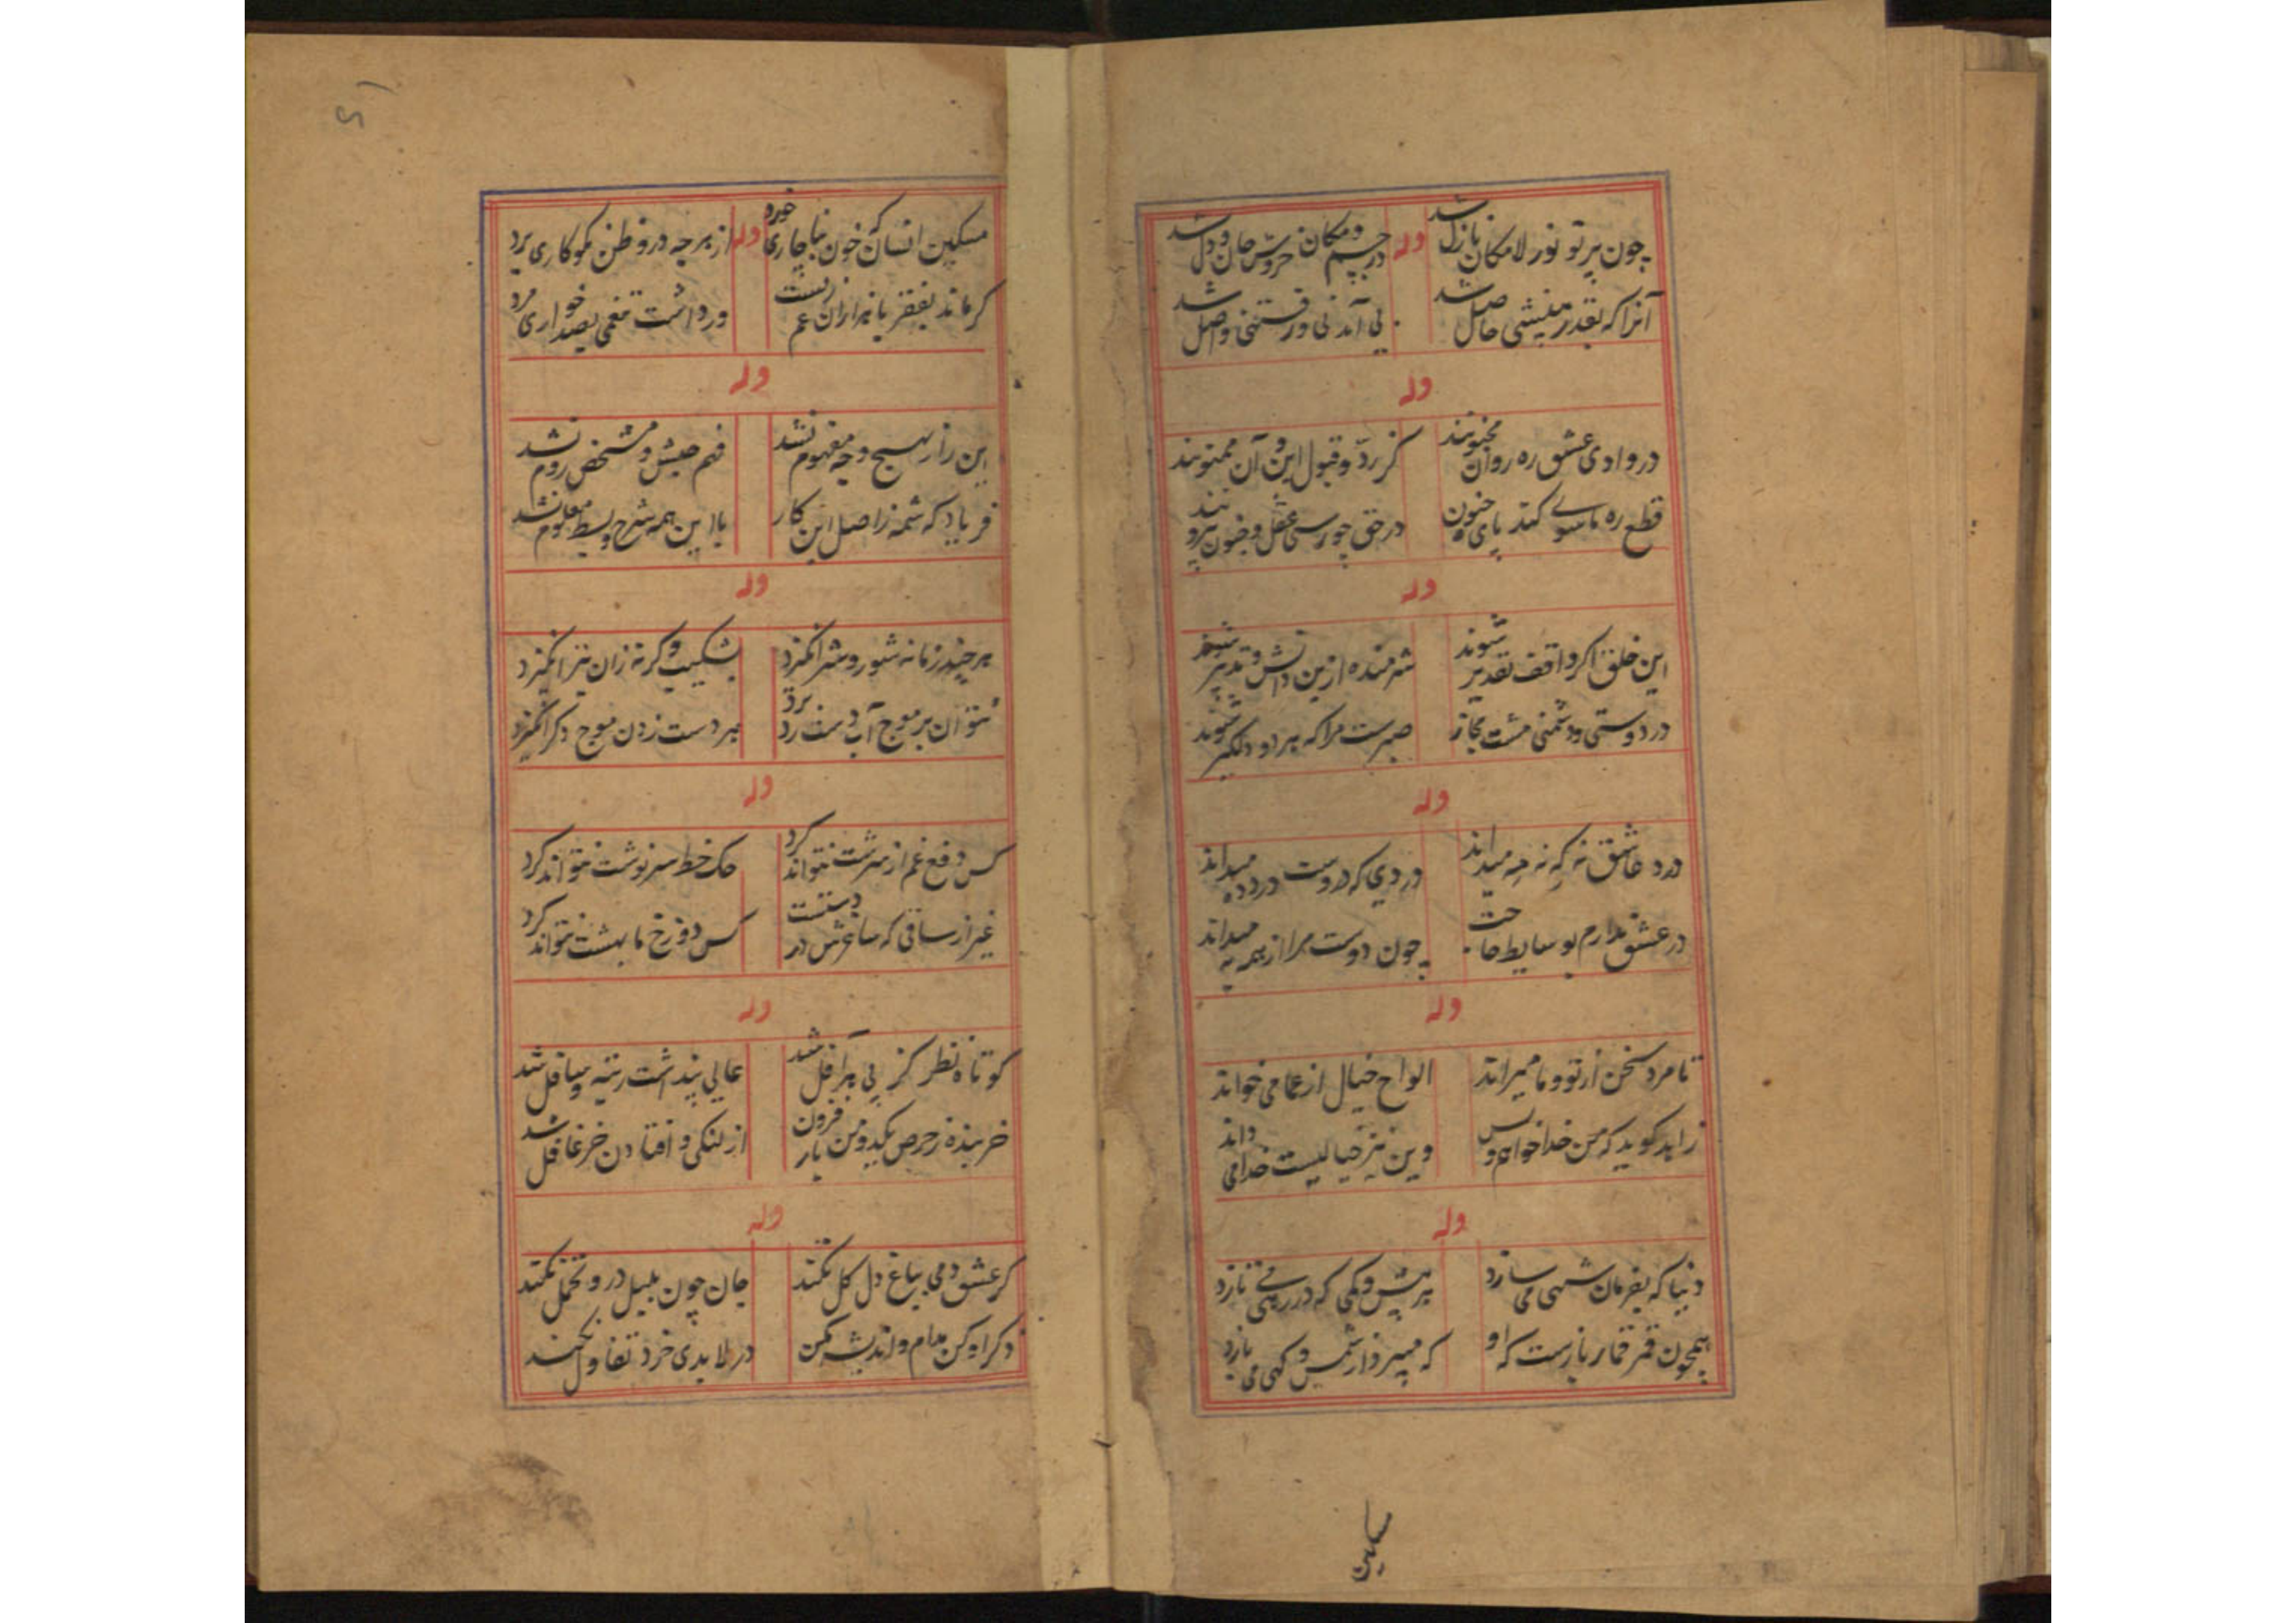 چون پرتو نور لامکان نازل شد
وله
در جسم و مکان خروش جان و دل شد
آنرا که بقدر نقشی حاصل شد
نی آمدنی و رفتنی واصل شد
وله
در وادی عشق ره روان مجنونند
کز ردّ و قبول این و آن ممنونند
قطع ره ماسوی کند پای جنون
در حق چو رسی عقل و جنون بیرونند
وله
این خلق اکر واقف تقدیر شوند
شرمنده ازین دانش و تدبیر شوند
در دوستی و دشمنی مشت مجاز
صبرست مرا که هر دو دلکیر شوند
وله
درد عاشق نه که نه مه میداند
دردی که دروست درد ده میداند
در عشق ندارم بوسایط حاجت
چون دوست مرا از همه به میداند
وله
تا مرد سخن از تو و ما میراند
الواح خیال از عما می خواند
زاهد کوید که من خدا خوانم و بس
وین نیز خیالیست خدا می داند
وله
دنیا که بفرمان شهی می سازد
هر پیش و کمی که در رهی نازد
همچون قمر قمار بازست که او
که میبر و از شمس و کهی می بازد
مسکین
مسکین انسان که خون بناچاری خورد
وله
از هر چه درو ظن نکوکاری برد
کر ماند بفقر با هزاران غم زیست
ور داشت تنعمی بصد خواری مرد
وله
این راز بهیچ وجه مفهوم نشد
فهم حبش و مشخص روم نشد
فریاد که شمه ز اصل این کار
با این همه شرح و بسط معلوم نشد
وله
هر چند زمانه شور و شر انکیزد
بشکیب و کرنه زان بتر انکیزد
نتوان بر موج آب دست رد زد
هر دست زدن موج دکر انکیزد
وله
کس دفع غم از سرشت نتواند کرد
حک خط سرنوشت نتواند کرد
غیر از ساقی که ساغرش در دستست
کس دوزخ ما بهشت نتواند کرد
وله
کوتاه نظر کز پی هر آفل شد
عالی پنداشت رتبه و سافل شد
خربنده ز حرص یکدو من بار فزون
از لنکی و افتادن خر غافل شد
وله
کر عشق دمی بباغ دل کل نکند
جان چون بلبل درو تحمل نکند
ذکر او کن مدام و اندیشه مکن
در لابدی خرد تفاول نکند